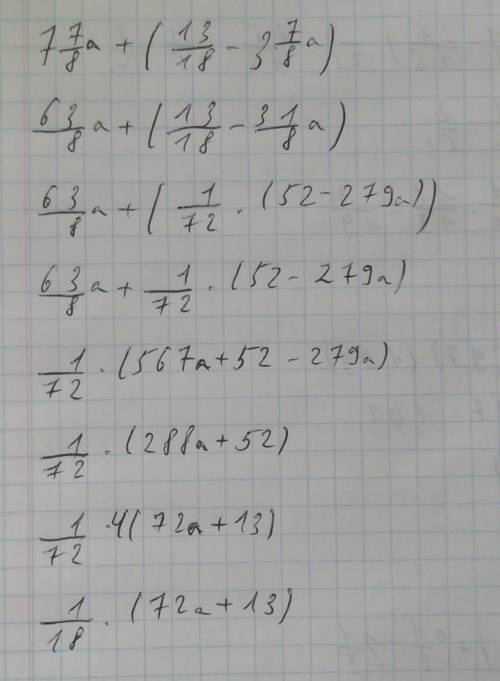 7 7/8 a + ( 13/18 - 3 7/8 a )
63/8 a + ( 13/18 - 31/8 a )
63/8 a + ( 1/72 · (52 - 279a) )
63/8 a + 1/72 · (52 - 279a)
1/72 · (567a + 52 - 279a)
1/72 · (288a + 52)
1/72 · 4(72a + 13)
1/18 · (72a + 13)